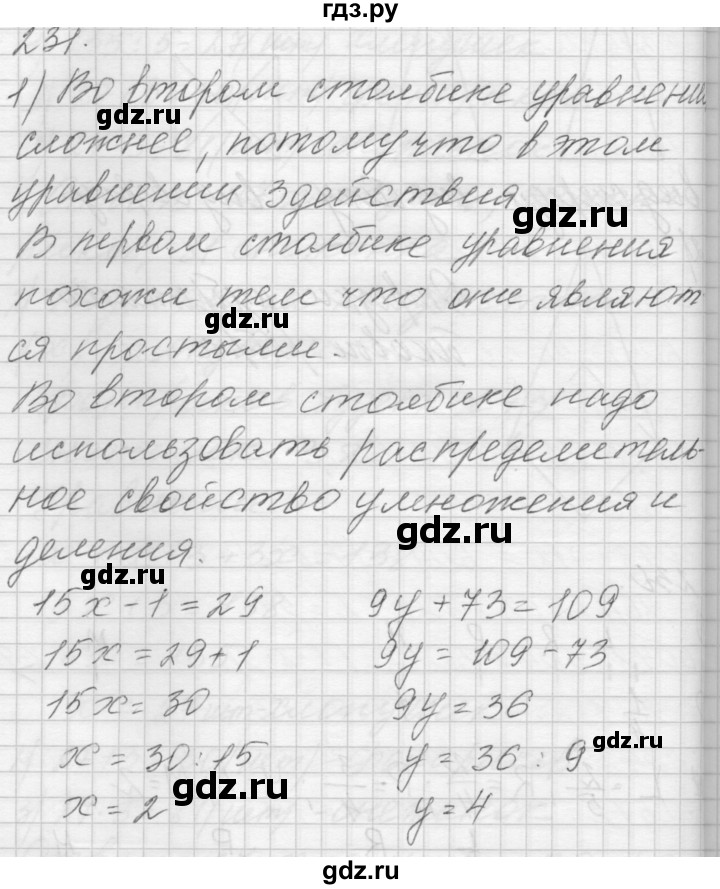 гдз.ру
231.
1) Во втором столбике уравнения
gdz.ru
сложнее, потому что в этом
уравнении 3 действия
gdz.ru
В первом столбике уравнения
похожи тем что они являют
gdz.ru
ся простыми.
Во втором столбике надо
использовать распределитель-
ное свойство умножения и
gdz.ru
деления.
gdz.ru
15x - 1 = 29 9y + 73 = 109
15x = 29 + 1 9y = 109 - 73
15x = 30 9y = 36
gdz.ru
x = 30 : 15 y = 36 : 9
gdz.ru
x = 2 y = 4
gdz.ru